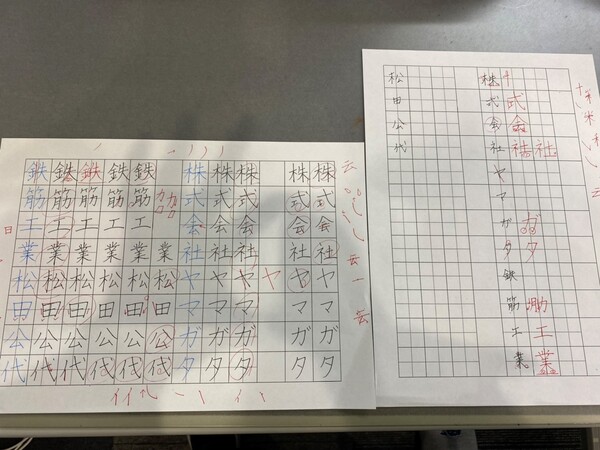 株式会社ヤマガタ鉄筋工業
松田公代
株式会社ヤマガタ
株式会社ヤマガタ
株式会社ヤマガタ
株式会社ヤマガタ
株式会社ヤマガタ
業松田公代
鉄筋工業松田公代
鉄筋工業松田公代
鉄筋工業松田公代
鉄筋工業松田公代
鉄筋工業松田公代